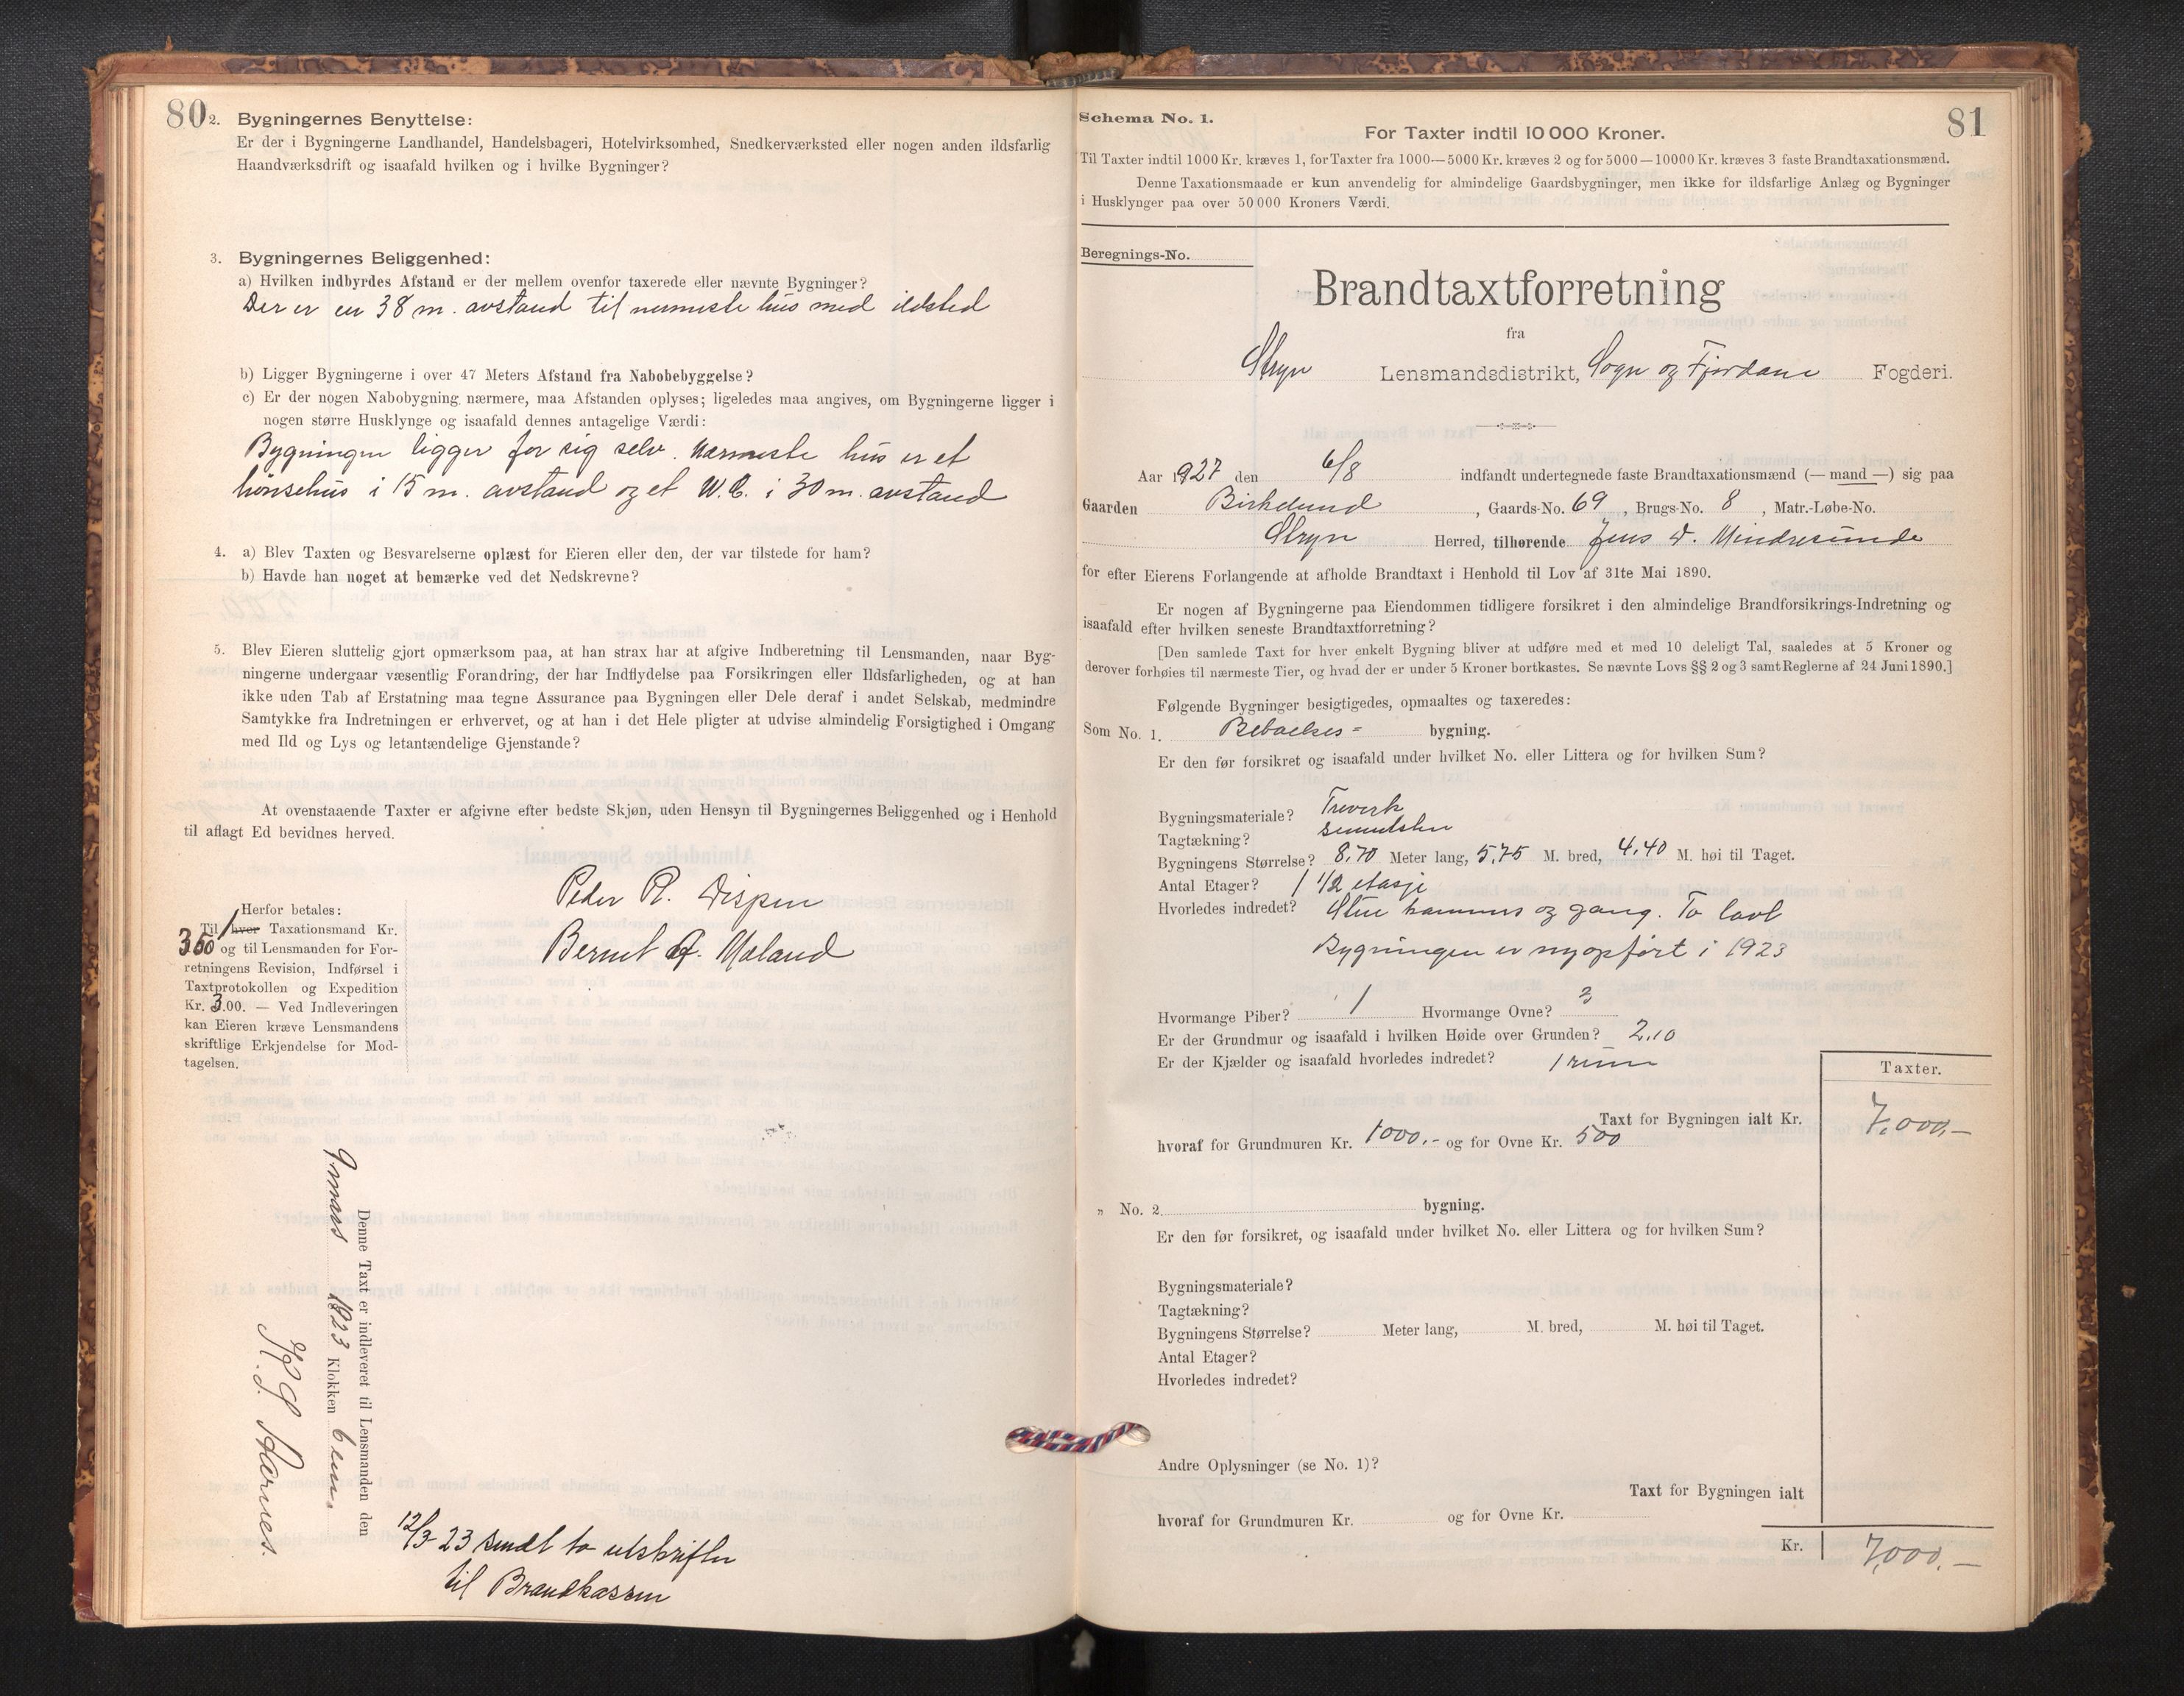 80
2. Bygningernes Benyttelse:
Er der i Bygningerne Landhandel, Handelsbageri, Hotelvirksomhed, Snedkerværksted eller nogen anden ildsfarlig
Haandværksdrift og isaafald hvilken og i hvilke Bygninger?
3. Bygningernes Beliggenhed:
a) Hvilken indbyrdes Afstand er der mellem ovenfor taxerede eller nævnte Bygninger?
Der er en 38 m. avstand til nermeste hus med ildsted
b) Ligger Bygningerne i over 47 Meters Afstand fra Nabobebyggelse?
c) Er der nogen Nabobygning nærmere, maa Afstanden oplyses; ligeledes maa angives, om Bygningerne ligger i
nogen større Husklynge og isaafald dennes antagelige Værdi:
Bygningen ligger for sig selv. Nærmeste hus er et
hönsehus i 15 m. avstand og et W.C. i 30 m. avstand
4. a) Blev Taxten og Besvarelserne oplæst for Eieren eller den, der var tilstede for ham?
b) Havde han noget at bemærke ved det Nedskrevne?
5. Blev Eieren sluttelig gjort opmærksom paa, at han strax har at afgive Indberetning til Lensmanden, naar Byg-
ningerne undergaar væsentlig Forandring, der har Indflydelse paa Forsikringen eller Ildsfarligheden, og at han
ikke uden Tab af Erstatning maa tegne Assurance paa Bygningen eller Dele deraf i andet Selskab, medmindre
Samtykke fra Indretningen er erhvervet, og at han i det Hele pligter at udvise almindelig Forsigtighed i Omgang
med Ild og Lys og letantændelige Gjenstande?
At ovenstaaende Taxter er afgivne efter bedste Skjøn, uden Hensyn til Bygningernes Beliggenhed og i Henhold
til aflagt Ed bevidnes herved.
Peder R. Dispen
Bernt A. Meland
Herfor betales:
Til 1 hver Taxationsmand Kr.
350 og til Lensmanden for For-
retningens Revision, Indførsel i
Taxtprotokollen og Expedition
Kr. 3.00. — Ved Indleveringen
kan Eieren kræve Lensmandens
skriftlige Erkjendelse for Mod-
tagelsen.
Denne Taxt er indleveret til Lensmanden den
9 mars 1923 Klokken 6 em.
12/3-23 sendt to utskrifter
til Brandkassen
81
Schema No. 1.
For Taxter indtil 10 000 Kroner.
Til Taxter indtil 1000 Kr. kræves 1, for Taxter fra 1000—5000 Kr. kræves 2 og for 5000—10000 Kr. kræves 3 faste Brandtaxationsmænd.
Denne Taxationsmaade er kun anvendelig for almindelige Gaardsbygninger, men ikke for ildsfarlige Anlæg og Bygninger
i Husklynger paa over 50 000 Kroners Værdi.
Beregnings-No.
Brandtaxtforretning
fra
Stryn Lensmandsdistrikt, Sogn og Fjordane Fogderi.
Aar 1927 den 6/8 indfandt undertegnede faste Brandtaxationsmænd (— mand —) sig paa
Gaarden Birkelund, Gaards-No. 69, Brugs-No. 8, Matr.-Løbe-No.
Stryn Herred, tilhørende Jens D. Mindresunde
for efter Eierens Forlangende at afholde Brandtaxt i Henhold til Lov af 31te Mai 1890.
Er nogen af Bygningerne paa Eiendommen tidligere forsikret i den almindelige Brandforsikrings-Indretning og
isaafald efter hvilken seneste Brandtaxtforretning?
[Den samlede Taxt for hver enkelt Bygning bliver at udføre med et med 10 deleligt Tal, saaledes at 5 Kroner og
derover forhøies til nærmeste Tier, og hvad der er under 5 Kroner bortkastes. Se nævnte Lovs §§ 2 og 3 samt Reglerne af 24 Juni 1890.]
Følgende Bygninger besigtigedes, opmaaltes og taxeredes:
Som No. 1. Beboelses= bygning.
Er den før forsikret og isaafald under hvilket No. eller Littera og for hvilken Sum?
Bygningsmateriale? Treverk
Tagtækning? sementsten
Bygningens Størrelse? 8,70 Meter lang, 5,75 M. bred, 4,40 M. høi til Taget.
Antal Etager? 1 1/2 etasje
Hvorledes indredet? Stue kammers og gang. To lovt
Bygningen er nyopført i 1923
Hvormange Piber? 1 Hvormange Ovne? 3
Er der Grundmur og isaafald i hvilken Høide over Grunden? 2,10
Er der Kjælder og isaafald hvorledes indredet? 1 rum
Taxter.
Taxt for Bygningen ialt Kr. 7.000,—
hvoraf for Grundmuren Kr. 1000.- og for Ovne Kr. 500
„ No. 2. bygning.
Er den før forsikret, og isaafald under hvilket No. eller Littera og for hvilken Sum?
Bygningsmateriale?
Tagtækning?
Bygningens Størrelse? Meter lang, M. bred, M. høi til Taget.
Antal Etager?
Hvorledes indredet?
Andre Oplysninger (se No. 1)?
Taxt for Bygningen ialt
hvoraf for Grundmuren Kr. og for Ovne Kr.
Kr. 7,000,—